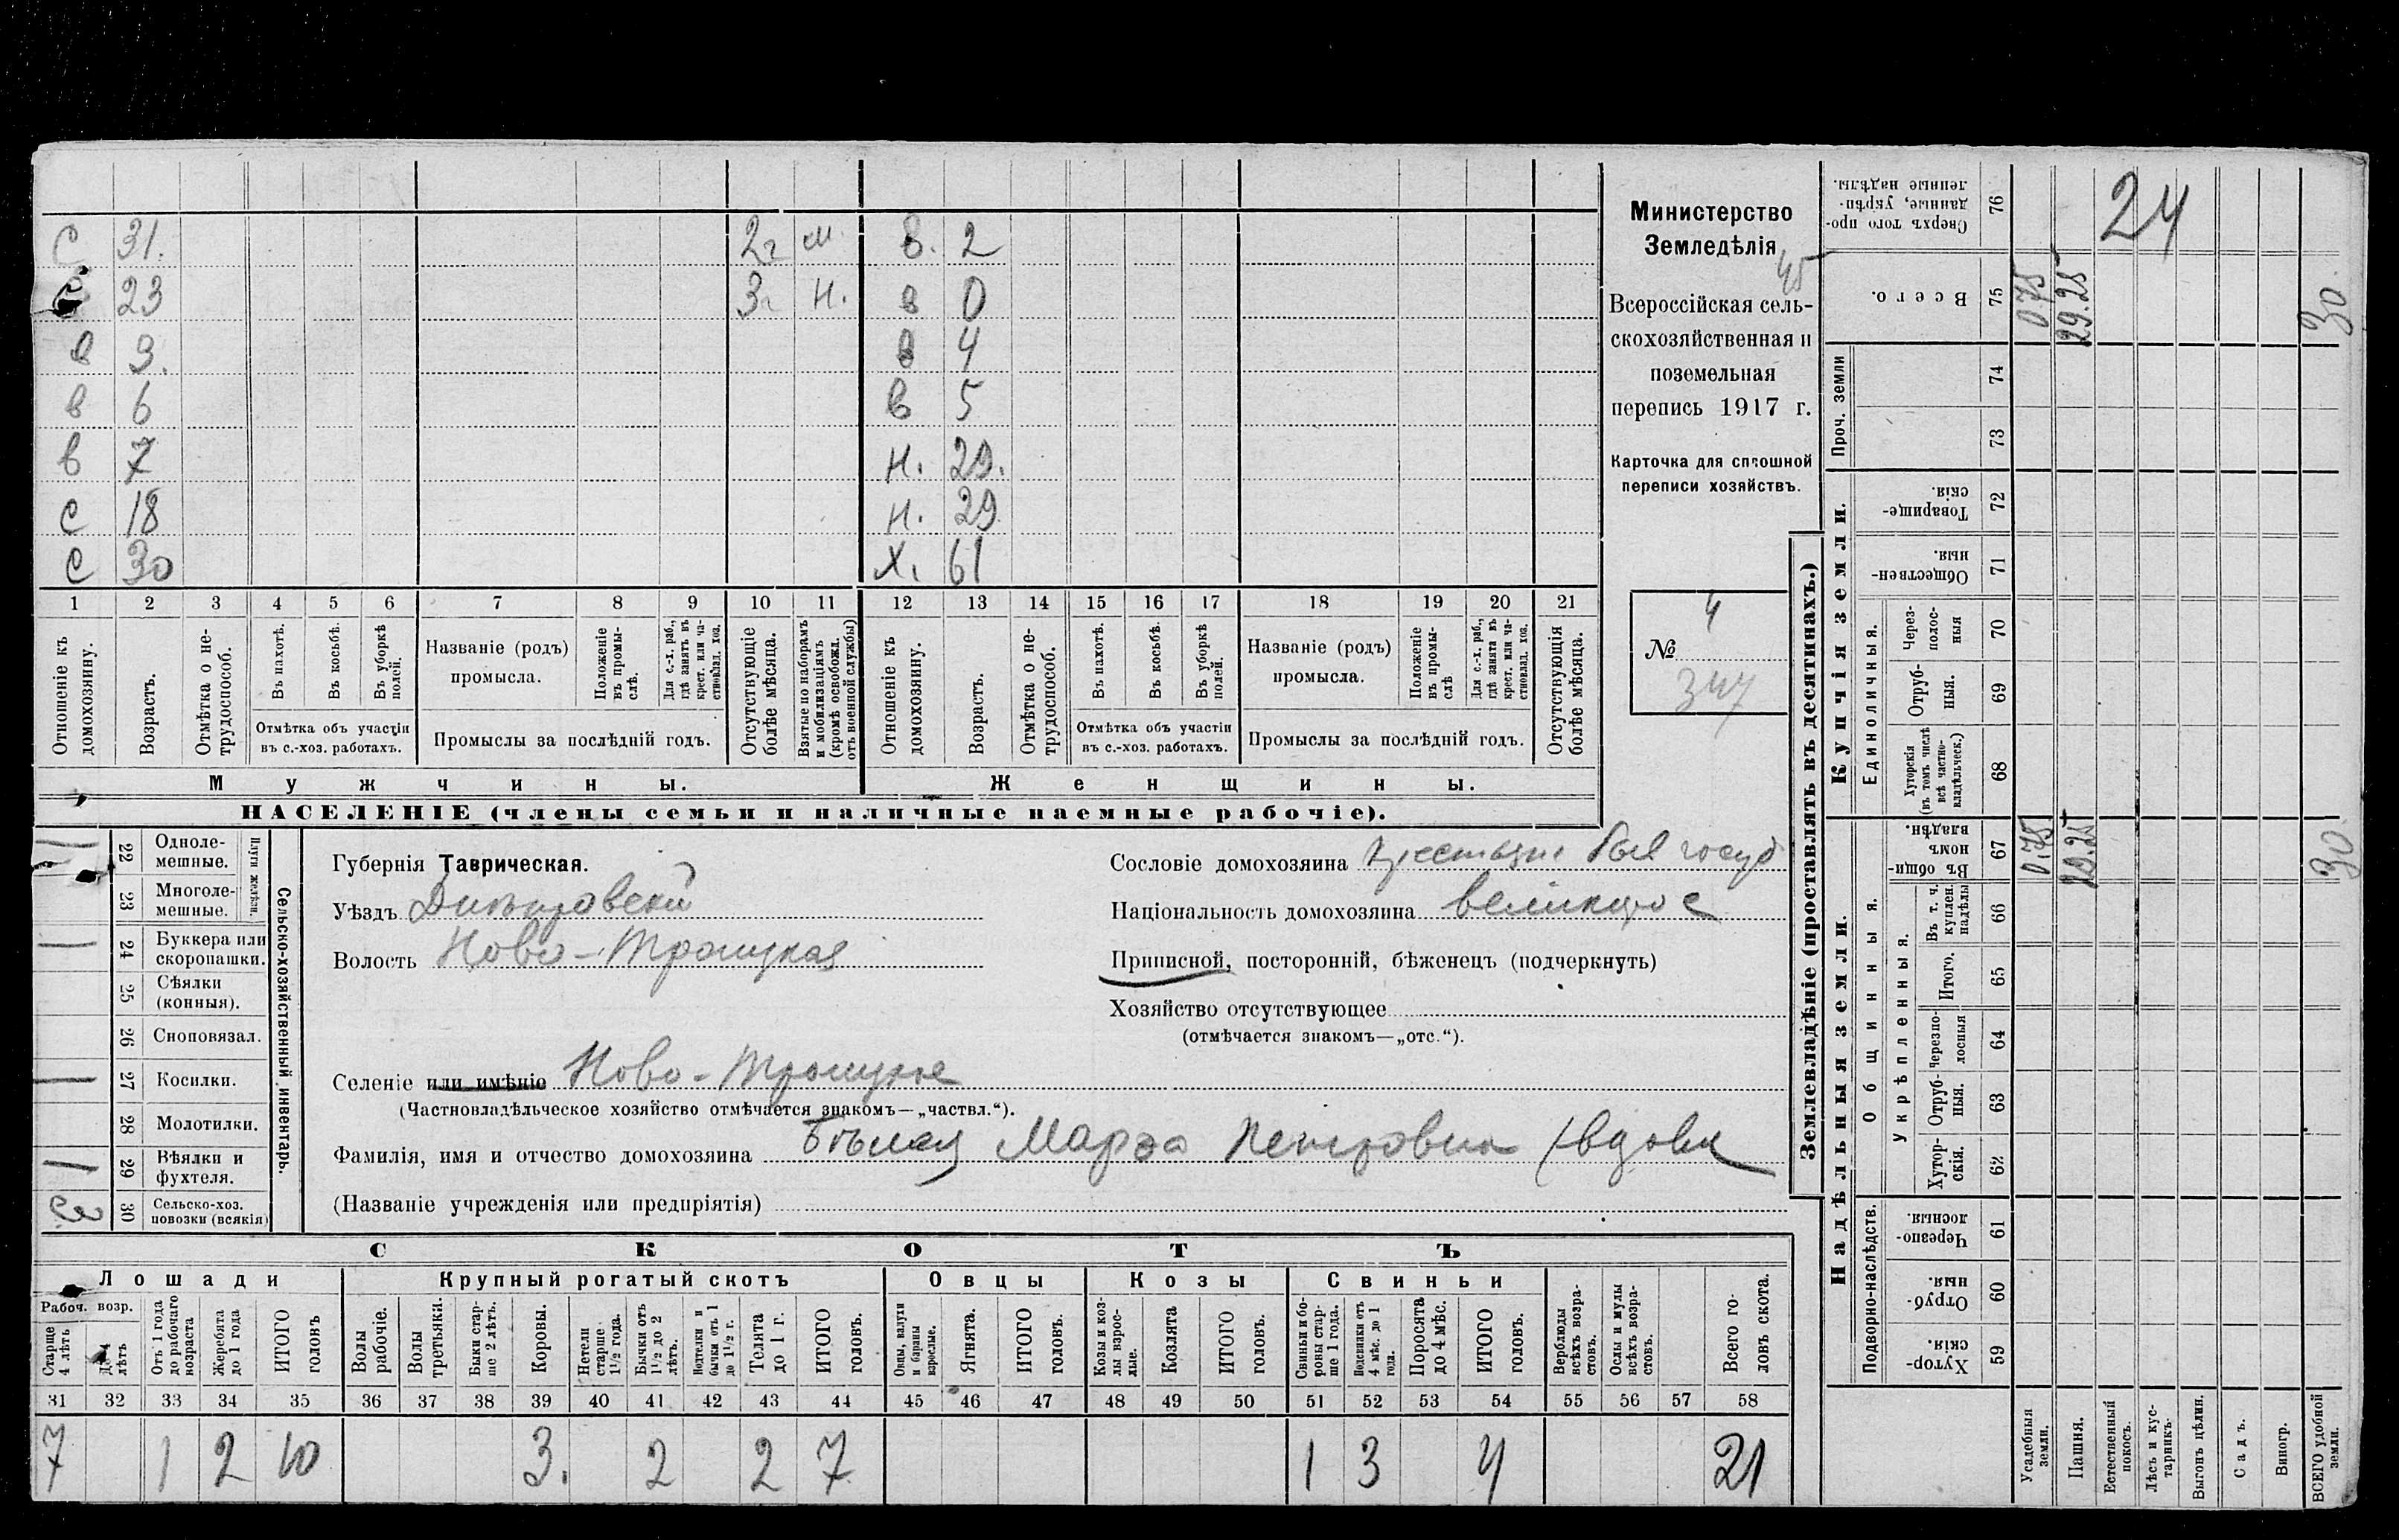 С 31. 2 г м. в. 2
С 23 3 г н. в 0
в 3. в 4
в 6 в 5
в 7 н. 29.
С 18 н. 29
С 30 х. 61
1 2 3 4 5 6 7 8 9 10 11 12 13 14 15 16 17 18 19 20 21
Отношеніе къ домохозяину.
Возрастъ.
Отмѣтка о нетрудоспособ.
Въ пахотѣ.
Въ косьбѣ.
Въ уборкѣ полей.
Отмѣтка объ участіи
въ с.-хоз. работахъ.
Названіе (родъ)
промысла.
Положеніе въ промыслѣ.
Для с.-х. раб., гдѣ занятъ въ крест. или частновлад. хоз.
Промыслы за послѣдній годъ.
Отсутствующіе болѣе мѣсяца.
Взятые по наборамъ и мобилизаціямъ (кромѣ освобожд. отъ военной службы)
Отношеніе къ домохозяину.
Возрастъ.
Отмѣтка о нетрудоспособ.
Въ пахотѣ.
Въ косьбѣ.
Въ уборкѣ полей.
Отмѣтка объ участіи
въ с.-хоз. работахъ.
Названіе (родъ)
промысла.
Положеніе въ промыслѣ
Для с.-х. раб., гдѣ занята въ крест. или частновлад. хоз.
Промыслы за послѣдній годъ.
Отсутствующія болѣе мѣсяца.
Мужчины. Женщины.
НАСЕЛЕНІЕ (члены семьи и наличные наемные рабочіе).
Министерство
Земледѣлія
45
Всероссійская сель-
скохозяйственная и
поземельная
перепись 1917 г.
Карточка для сплошной
переписи хозяйствъ.
4
№
347
Сельско-хозяйственный инвентарь.
Плуги желѣзн.
22 Одноле-
мешные.
23 Многоле-
мешные.
24 Буккера или
скоропашки.
25 Сѣялки
(конныя).
26 Сноповязал.
27 Косилки.
28 Молотилки.
29 Вѣялки и
фухтеля.
30 Сельско-хоз.
повозки (всякія)
Губернія Таврическая.
Уѣздъ Днѣпровскій
Волость Ново-Троицкая
Сословіе домохозяина Крестьяне быв госуд
Національность домохозяина великорос
Приписной, посторонній, бѣженецъ (подчеркнуть)
Хозяйство отсутствующее
(отмѣчается знакомъ—„отс.“).
Селеніе или имѣніе Ново-Троицкое
(Частновладѣльческое хозяйство отмѣчается знакомъ—„частвл.“).
Фамилія, имя и отчество домохозяина Бѣлая Марѳа Петровна (вдова
(Названіе учрежденія или предпріятія)
СКОТЪ
Лошади Крупный рогатый скотъ Овцы Козы Свиньи
Рабоч. возр.
Старше 4 лѣтъ
До 4 лѣтъ
Отъ 1 года до рабочаго возраста
Жеребята до 1 года
ИТОГО головъ
Волы рабочіе.
Волы третьяки.
Быки старше 2 лѣтъ.
Коровы.
Нетели старше 1½ года.
Бычки отъ 1½ до 2 лѣтъ.
Подтелки и бычки отъ 1 до 1½ г.
Телята до 1 г.
ИТОГО головъ.
Овцы, валухи и бараны взрослые.
Ягнята.
ИТОГО головъ.
Козы и козлы взрослые.
Козлята
ИТОГО головъ.
Свиньи и боровы старше 1 года.
Подсвинки отъ 4 мѣс. до 1 года.
Поросята до 4 мѣс.
ИТОГО головъ.
Верблюды всѣхъ возрастовъ.
Ослы и мулы всѣхъ возрастовъ.
Всего головъ скота.
31 32 33 34 35 36 37 38 39 40 41 42 43 44 45 46 47 48 49 50 51 52 53 54 55 56 57 58
7 1 2 10 3. 2 2 7 1 3 4 21
Землевладѣніе (проставлять въ десятинахъ.)
Проч. земли
Купчія земли.
Единоличныя.
Надѣльныя земли.
Общинныя.
Укрѣпленныя.
Подворно-наслѣдств.
Сверхъ того проданные, укрѣпленные надѣлы. 76 24
Всего. 75 0.75 29.25 30.
74
73
Товарищескія. 72
Общественныя. 71
Черезполосныя 70
Отрубныя. 69
Хуторскія (въ томъ числѣ всѣ частновладѣльческ.) 68
Въ общинномъ владѣн. 67 0.75 29.25 30.
Въ т. ч. куплен. надѣлы 66
Итого. 65
Черезполосныя 64
Отрубныя. 63
Хуторскія. 62
Черезполосныя. 61
Отрубныя. 60
Хуторскія 59
Усадебныя земли.
Пашня.
Естественный покосъ.
Лѣсъ и кустарникъ.
Выгонъ цѣлин.
Садъ.
Виногр.
ВСЕГО удобной земли.